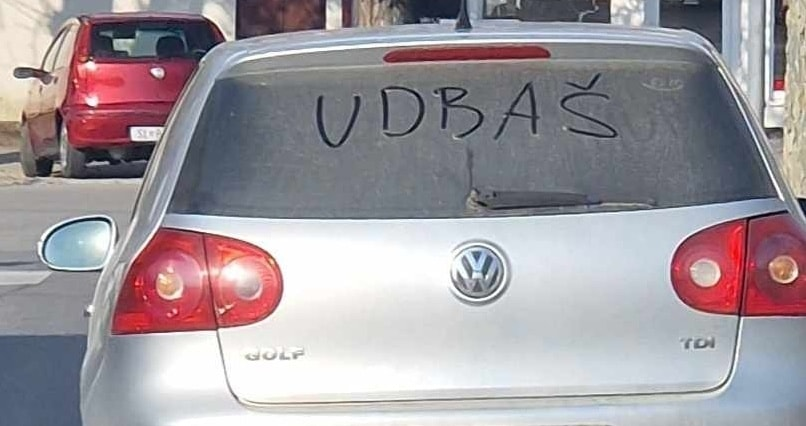 UDBAŠ
GOLF
TDI